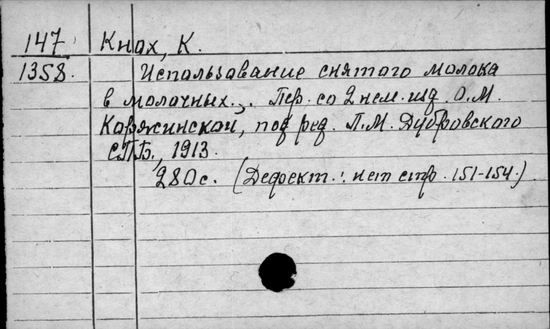 147 Кнах, К.
1358. Использование снятого молока
в молочных... Пер. со 2 нем. изд. О.М.
Коряжинской, под ред. П.М. Дубровского
СПБ., 1913.
280 с. (Дефект.: нет стр. 151-154.)